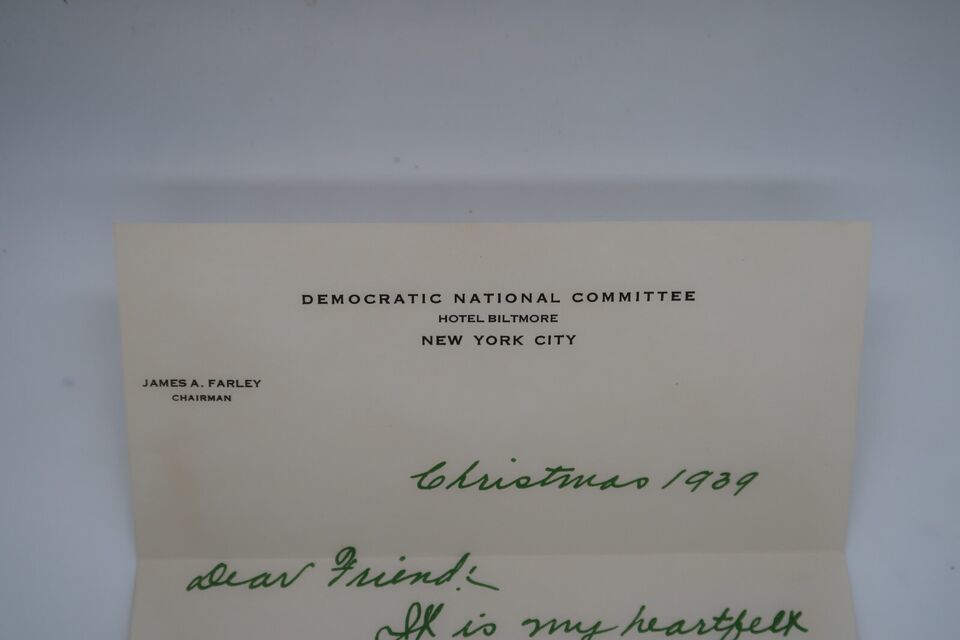 DEMOCRATIC NATIONAL COMMITTEE
HOTEL BILTMORE
NEW YORK CITY
JAMES A. FARLEY
CHAIRMAN
Christmas 1939
Dear Friend:
It is my heartfelt